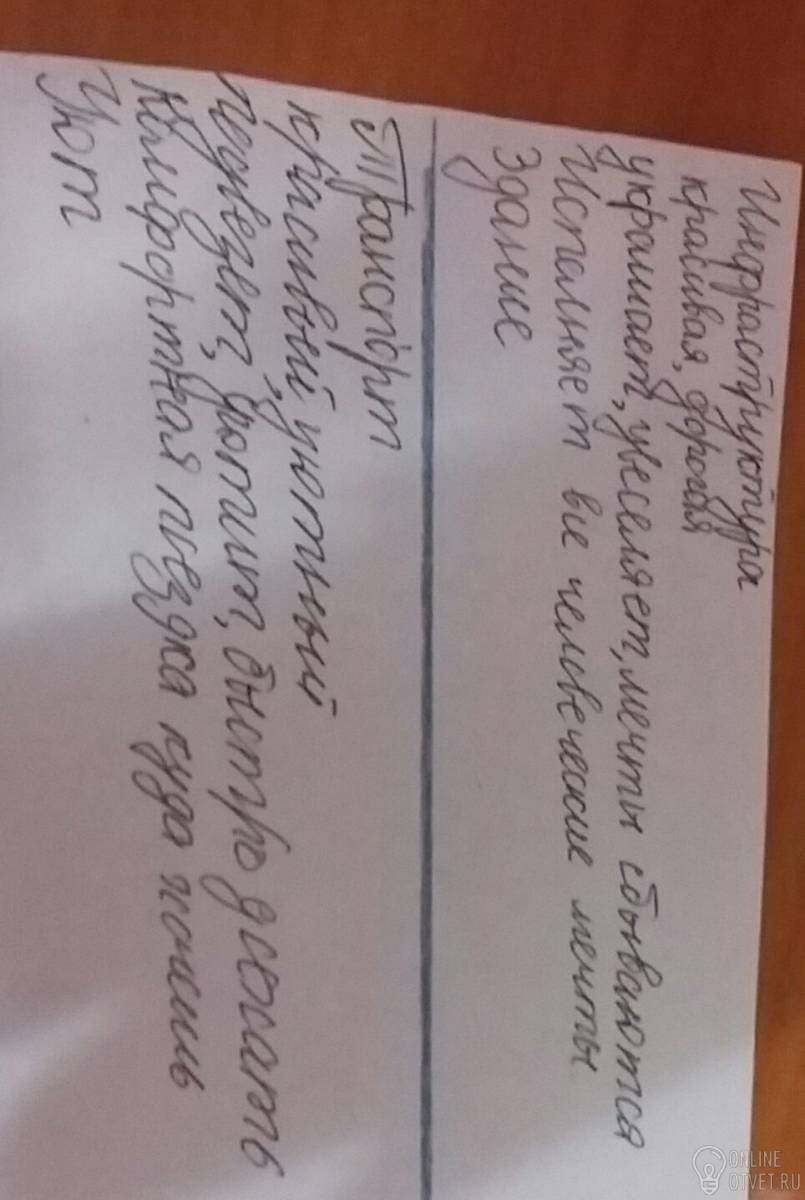 Инфраструктура
красивая, дорогая
украшает, увеселяет, мечты сбываются
Исполняет все человеческие мечты
Здание
Транспорт
красивый, уютный
Подвезет, быстро
Комфортная поездка куда хочешь
Уют
ONLINE
OTVET.RU